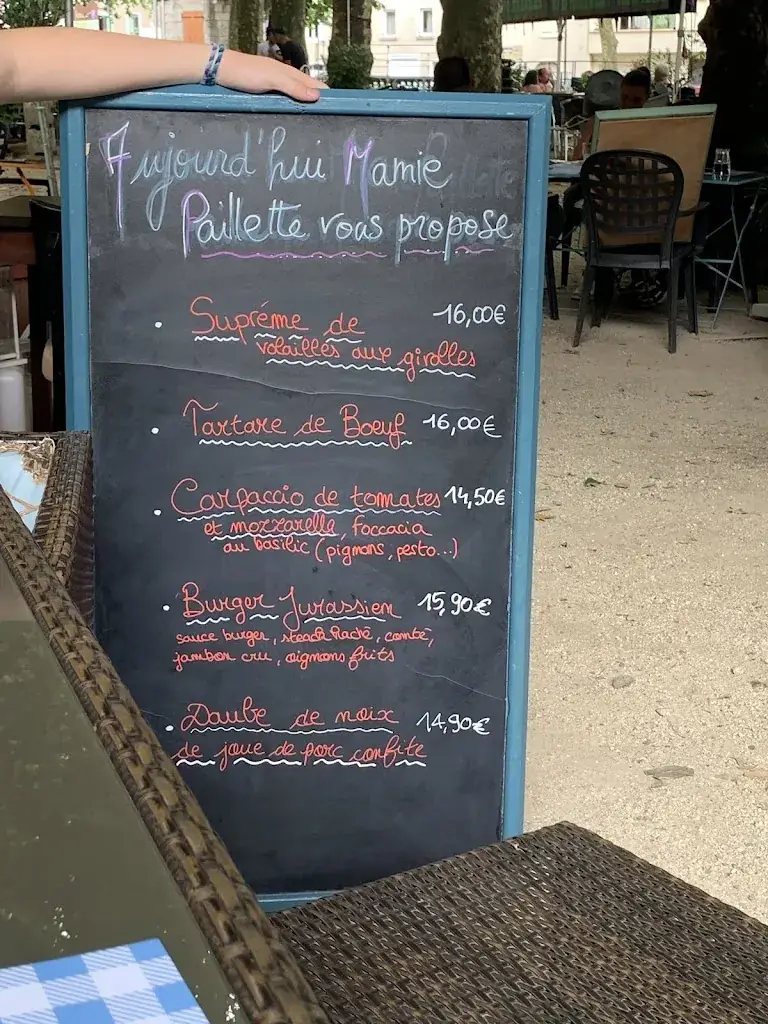 Aujourd'hui Mamie
Paillette vous propose
• Supréme de 16,00€
volailles aux girolles
• Tartare de Boeuf 16,00€
• Carpaccio de tomates 14,50€
et mozzarella, foccacia
au basilic (pignons, pesto...)
• Burger Jurassien 15,90€
sauce burger, steack haché, comté,
jambon cru, oignons frits
• Daube de noix 14,90€
de joue de porc confite